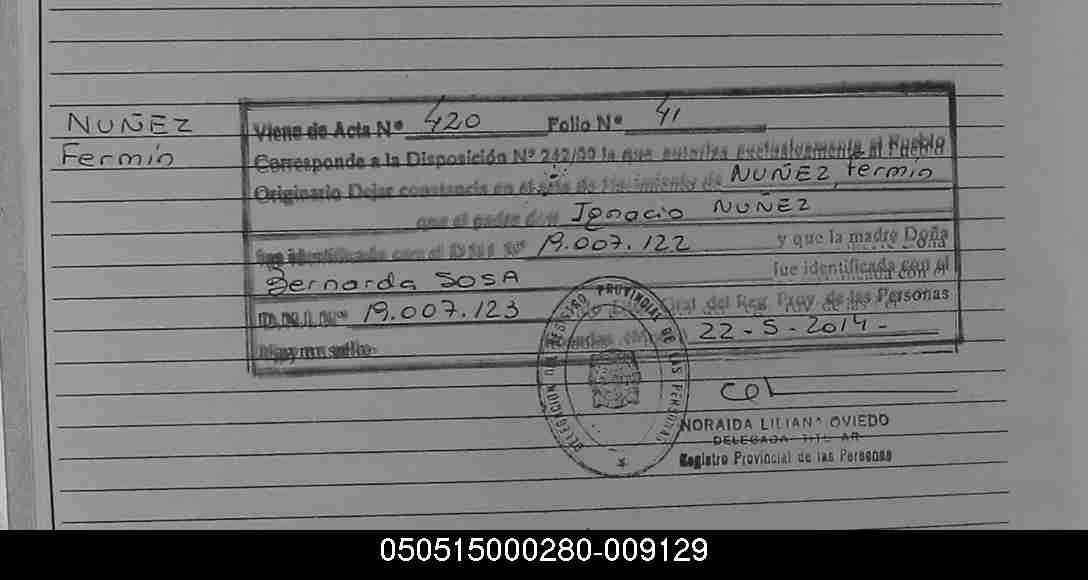 NUÑEZ
Fermín
Viene de Acta Nº 420 Folio Nº 41
Corresponde a la Disposición Nº 242/99 la que autoriza exclusivamente al Pueblo
Originario Dejar constancia en el acta de Nacimiento de NUÑEZ, Fermín
que el padre don Ignacio NUÑEZ
fue identificado con el D.N.I. Nº 19.007.122 y que la madre Doña
Bernarda SOSA fue identificada con el
D.N.I. Nº 19.007.123 Gral del Reg. Prov. de las Personas
22-5-2014-
Hay un sello
DELEGACION DEL REGISTRO PROVINCIAL DE LAS PERSONAS
NORAIDA LILIANA OVIEDO
DELEGADA TITULAR
Registro Provincial de las Personas
050515000280-009129